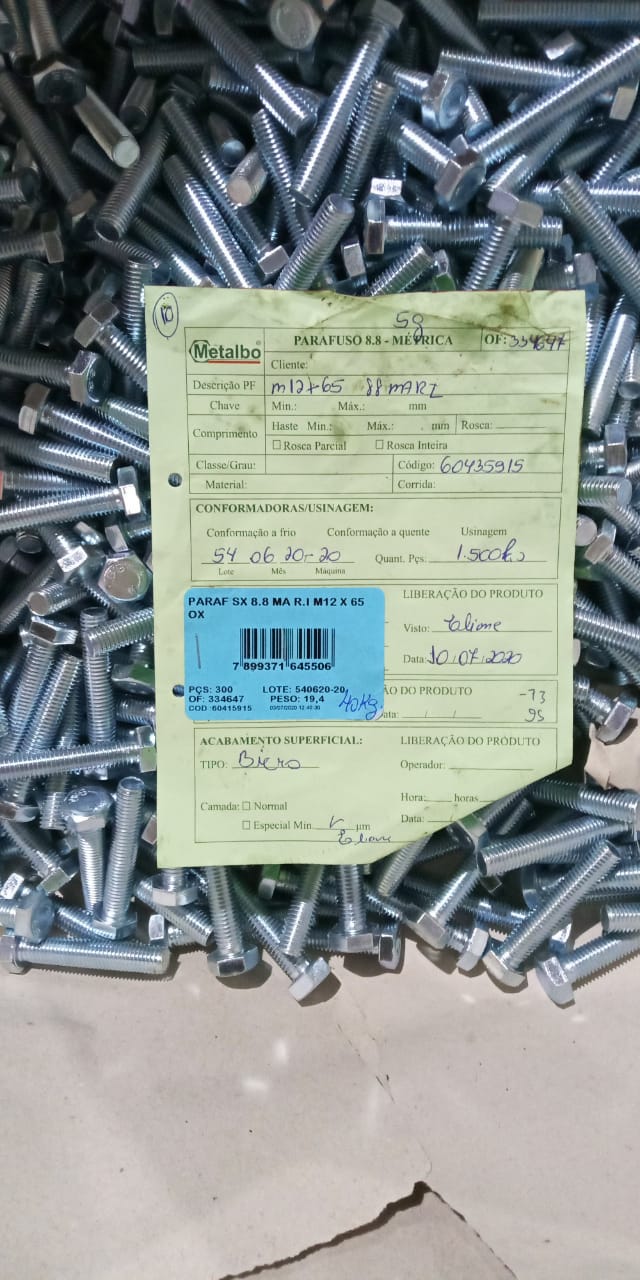 10
58
Metalbo
PARAFUSO 8.8 - MÉTRICA OF: 334647
Cliente:
Descrição PF m12x65 88 MARI
Chave Mín.: Máx.: mm
Comprimento Haste Mín.: Máx.: mm Rosca:
Rosca Parcial Rosca Inteira
Classe/Grau: Código: 60435915
Material: Corrida:
CONFORMADORAS/USINAGEM:
Conformação a frio Conformação a quente Usinagem
54 06 20-20 Quant. Pçs: 1.500
Lote Mês Máquina
PARAF SX 8.8 MA R.I M12 X 65
OX
7 899371 645506
PÇS: 300 LOTE: 540620-20
OF: 334647 PESO: 19,4 40kg
COD :60415915 03/07/2020
LIBERAÇÃO DO PRODUTO
Visto: Eliane
Data: 10/07/2020
ÃO DO PRODUTO -73
ata: / / 95
ACABAMENTO SUPERFICIAL: LIBERAÇÃO DO PRODUTO
TIPO: Operador:
Camada: Normal Hora: horas
Especial Mín. µm Data: /
Eliane